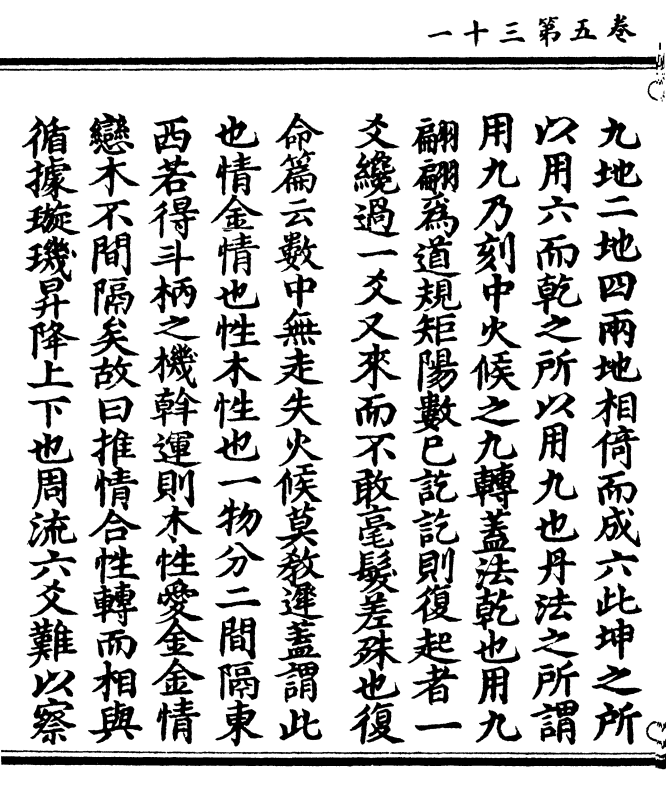 卷五第三十一
九地二地四兩地相倚而成六此坤之所
以用六而乾之所以用九也丹法之所謂
用九乃刻中火候之九轉蓋法乾也用九
翩翩爲道規矩陽數已訖訖則復起者一
爻纔過一爻又來而不敢毫髮差殊也復
命篇云數中無走失火候莫教遲蓋謂此
也情金情也性木性也一物分二間隔東
西若得斗柄之機斡運則木性愛金金情
戀木不間隔矣故曰推情合性轉而相與
循據璇璣昇降上下也周流六爻難以察